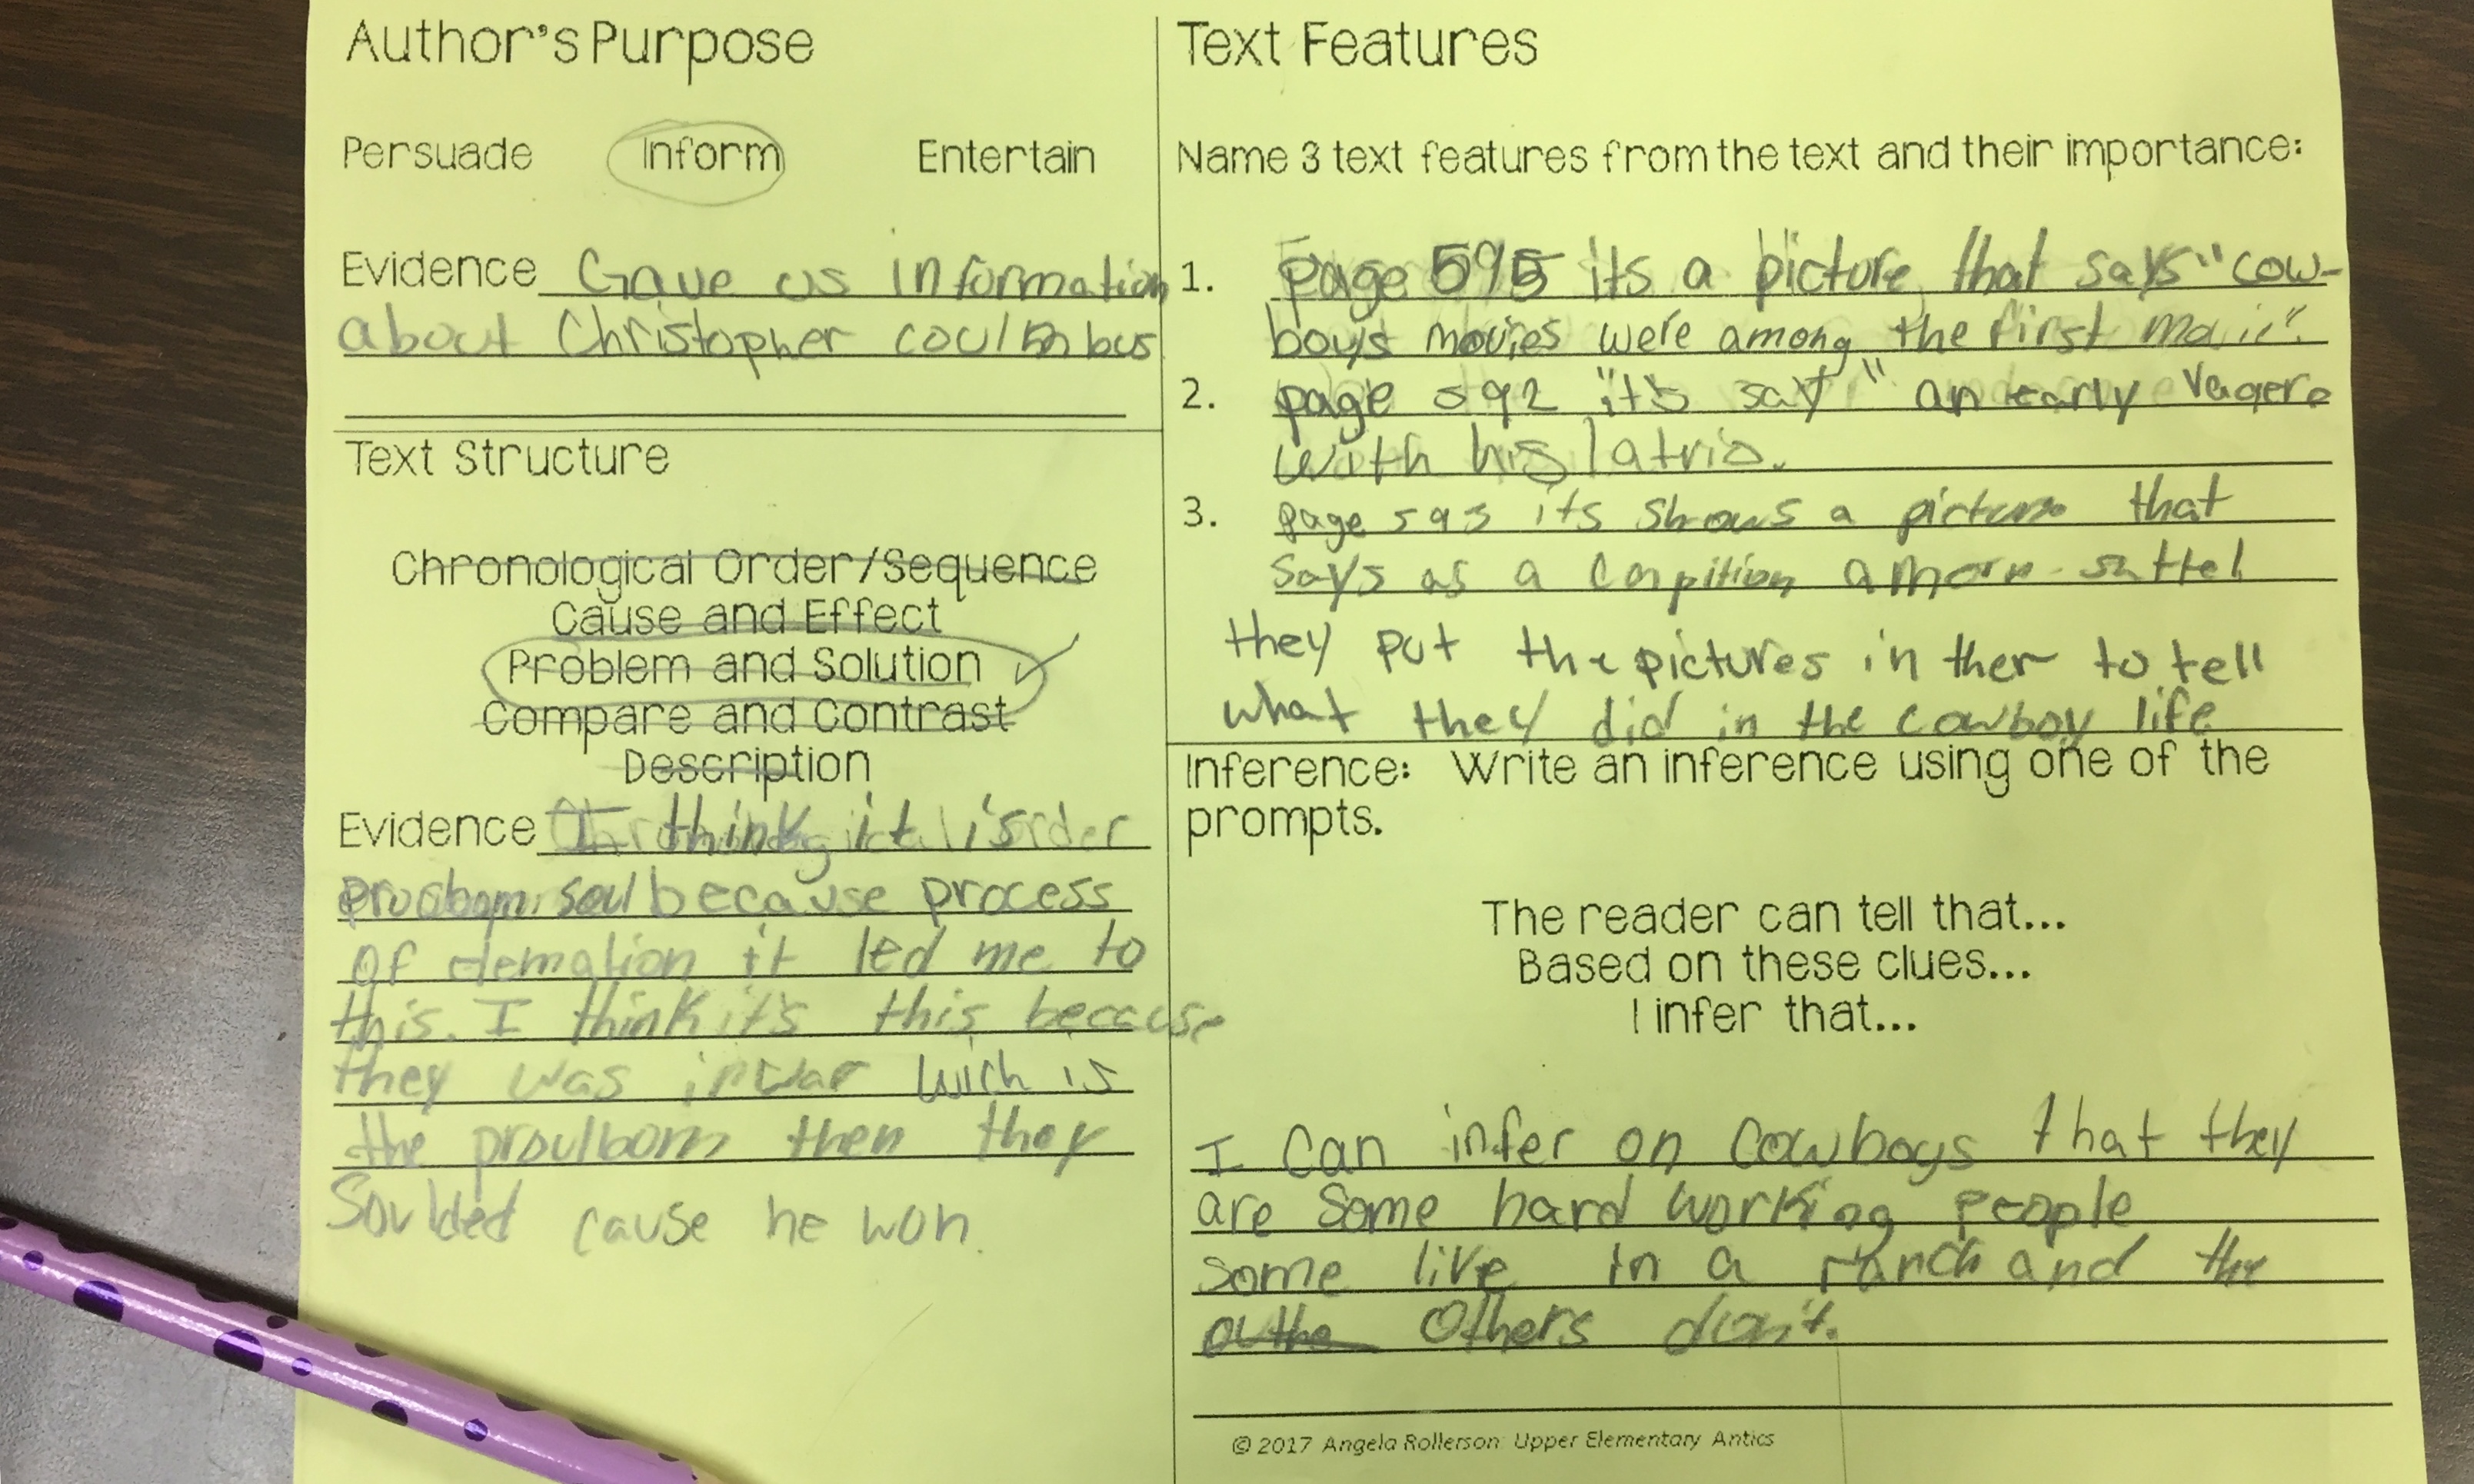 Author's Purpose
Persuade Inform Entertain
Evidence Gave us information
about Christopher coulmbus
Text Structure
Chronological Order/Sequence
Cause and Effect
Problem and Solution
Compare and Contrast
Description
Evidence I think it is
because process
of elemation it led me to
this. I think it's this because
they was in war wich is
the proulbom then they
Soulded cause he won.
Text Features
Name 3 text features from the text and their importance:
1. Page 595 its a picture that says "cow-
boys movies were among the first
2. page 592 "it's say" an early
with his latrio.
3. page 593 its shows a picture that
says as a
they put the pictures in ther to tell
what they did in the cowboy life
Inference: Write an inference using one of the
prompts.
The reader can tell that...
Based on these clues...
I infer that...
I can infer on cowboys that they
are some hard working people
some live in a ranch and the
others don't.
© 2017 Angela Rollerson: Upper Elementary Antics